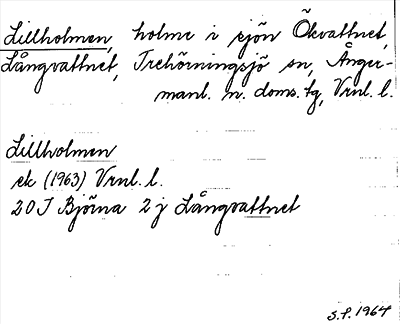 Lillholmen, holme i sjön Ökvattnet,
Långvattnet, Trehörningsjö sn, Ånger-
manl. n. doms. tg, Vrnl. l.
Lillholmen
ek (1963) Vrnl. l.
20 J Björna 2 j Långvattnet
S.F. 1964